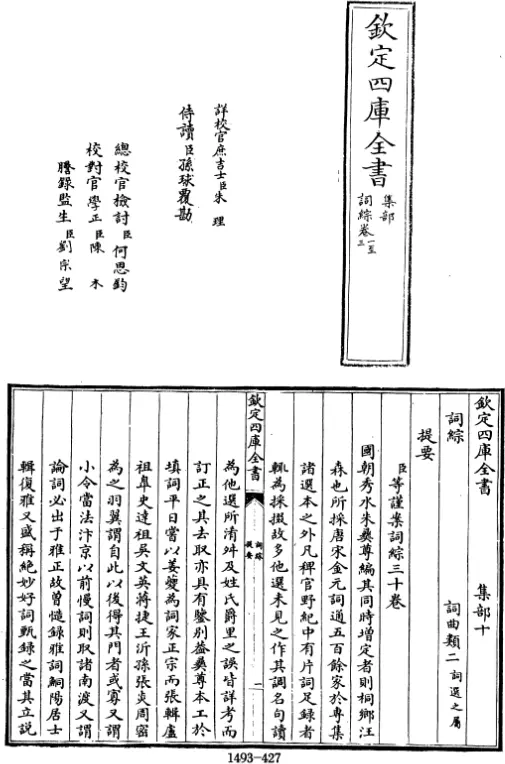 欽定四庫全書
集部
詞綜卷一至三
詳校官庶吉士臣朱理
侍讀臣孫球覆勘
總校官檢討臣何思鈞
校對官學正臣陳木
謄錄監生臣劉宗望
欽定四庫全書
集部十
詞綜
詞曲類二詞選之屬
提要
臣等謹案詞綜三十卷
國朝秀水朱彝尊編其同時增定者則桐鄉汪
森也所採唐宋金元詞通五百餘家於專集
諸選本之外凡稗官野紀中有片詞足錄者
輒為採掇故多他選未見之作其調名句讀
欽定四庫全書
詞綜
提要
一
為他選所淆舛及姓氏爵里之誤皆詳考而
訂正之其去取亦具有鑒別蓋彝尊本工於
填詞平日嘗以姜夔為詞家正宗而張輯盧
祖臯史達祖吳文英蔣捷王沂孫張炎周密
為之羽翼謂自此以後得其門者或寡又謂
小令當法汴京以前慢詞則取諸南渡又謂
論詞必出于雅正故曾慥錄雅詞鮦陽居士
輯復雅又盛稱絕妙好詞甄錄之當其立說
1493-427